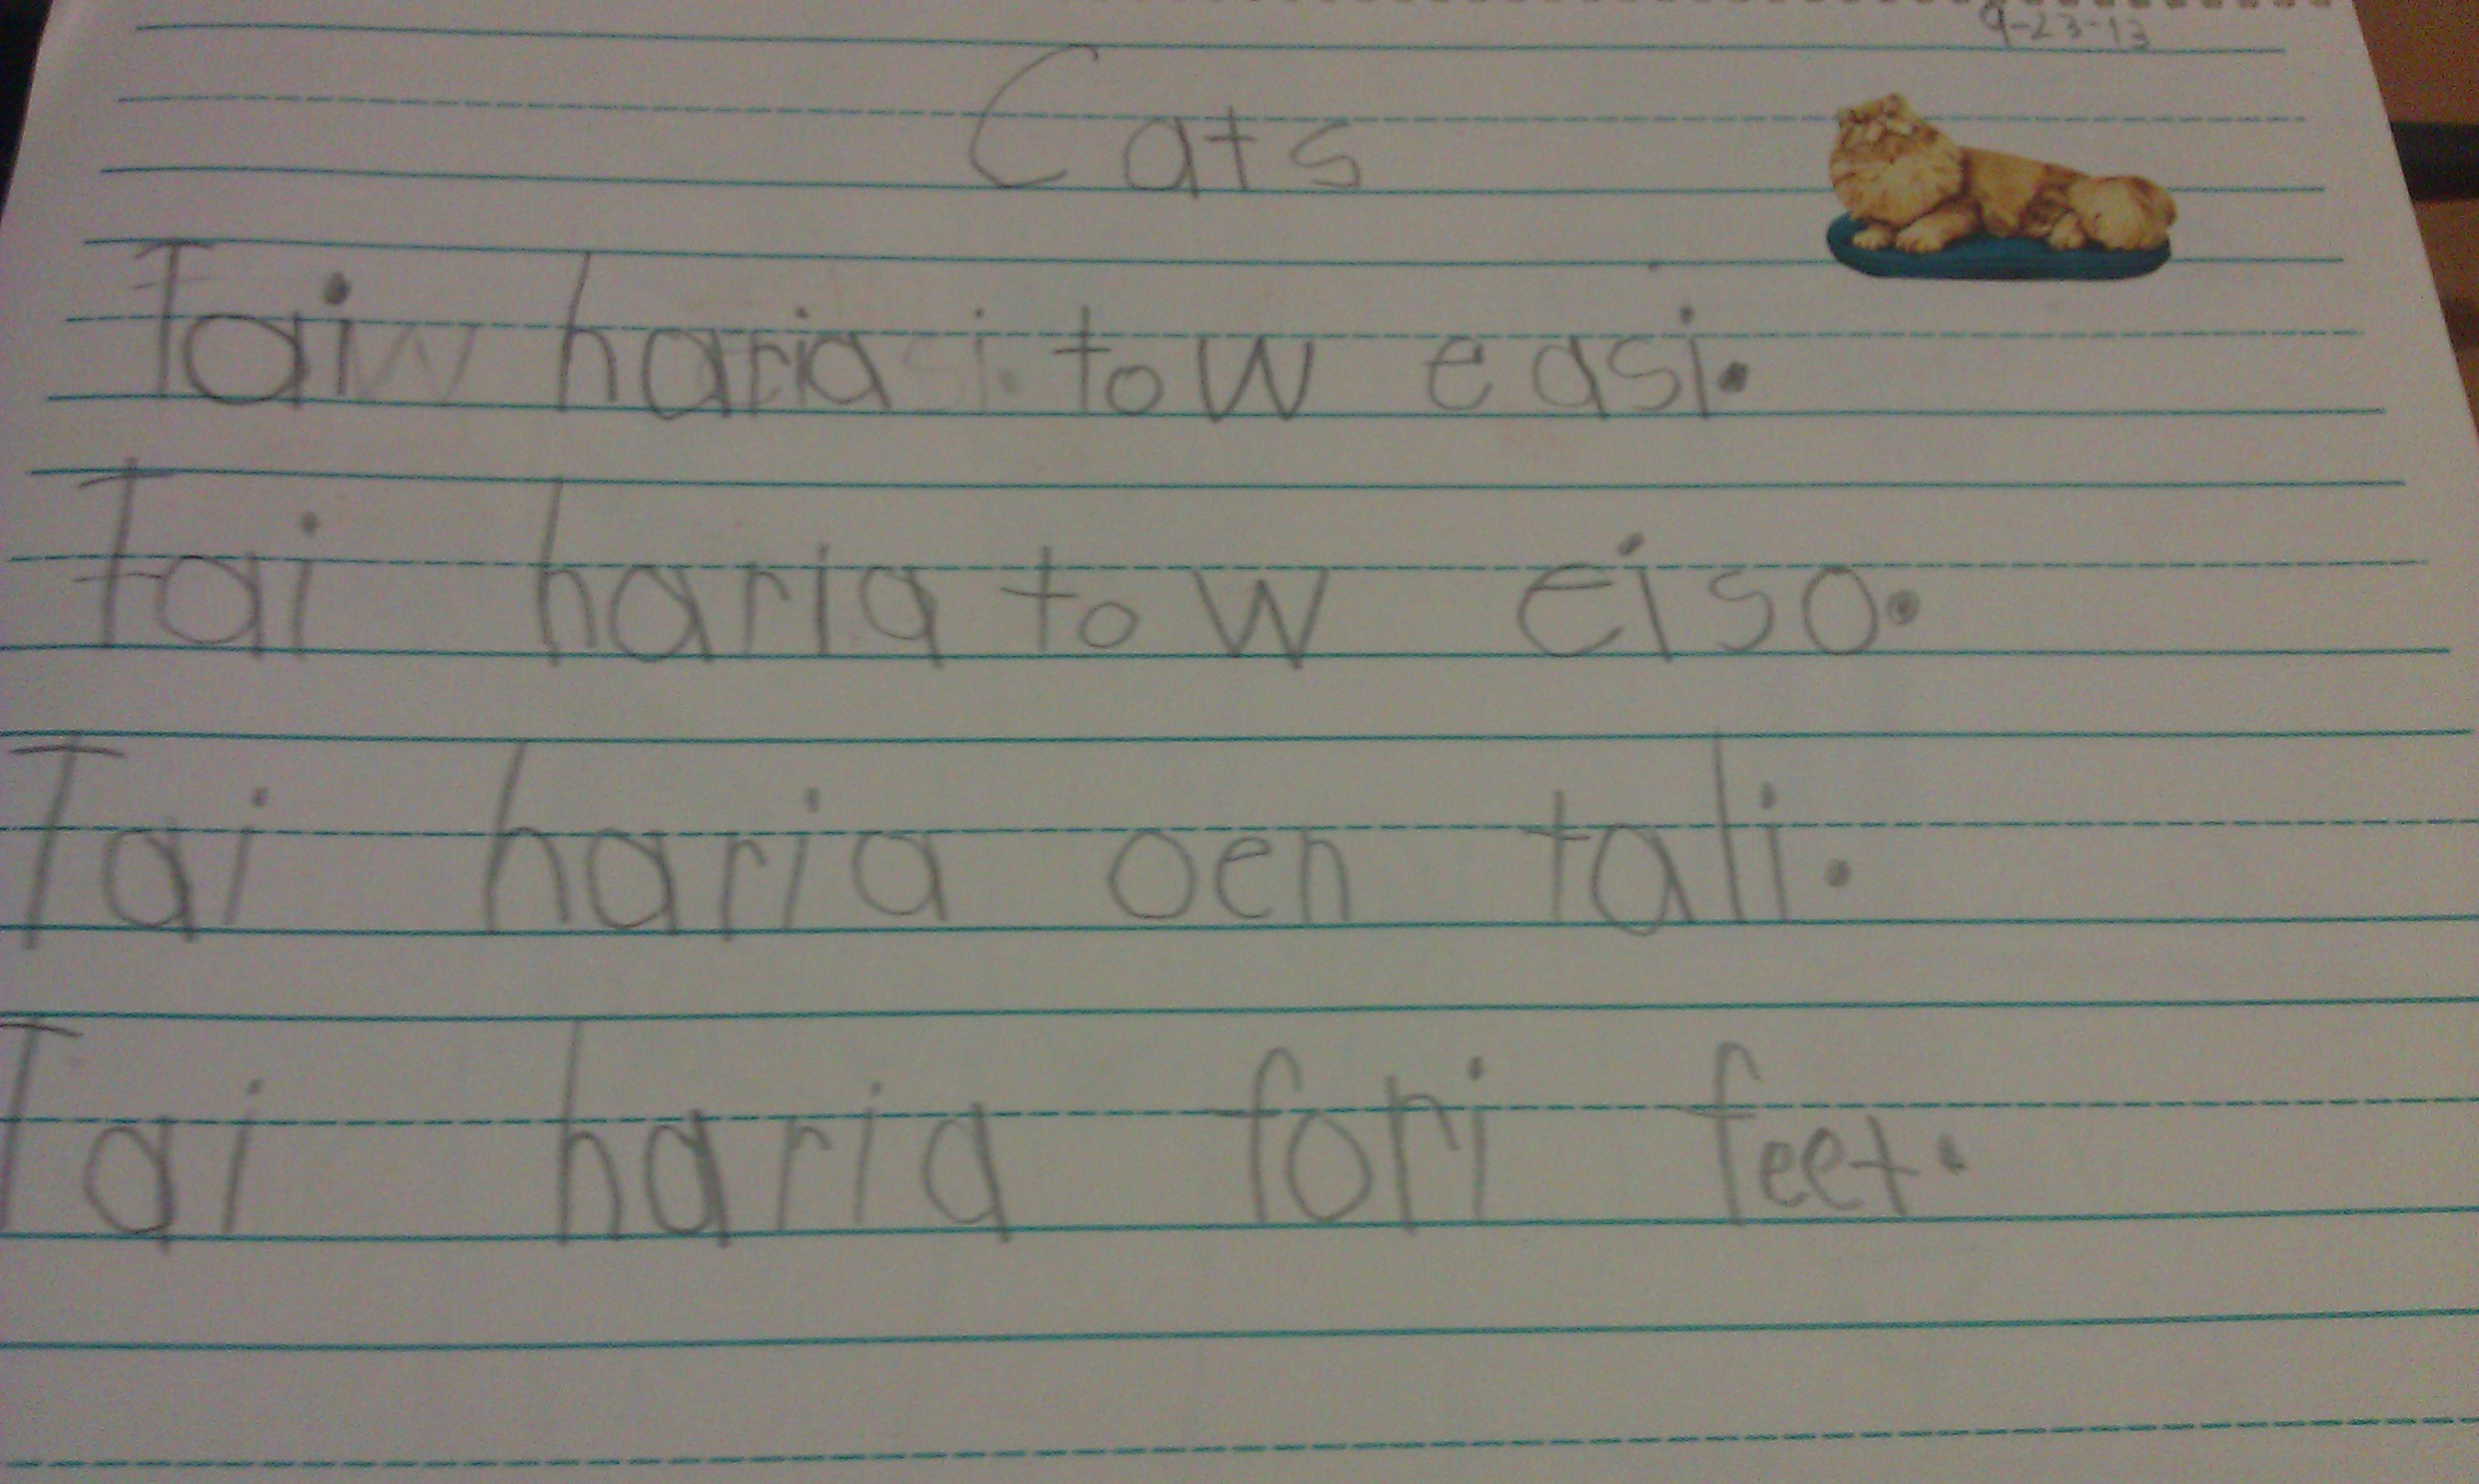 9-23-13
Cats
Tai haria tow easi.
Tai haria tow eiso.
Tai haria oen tali.
Tai haria fori feet.